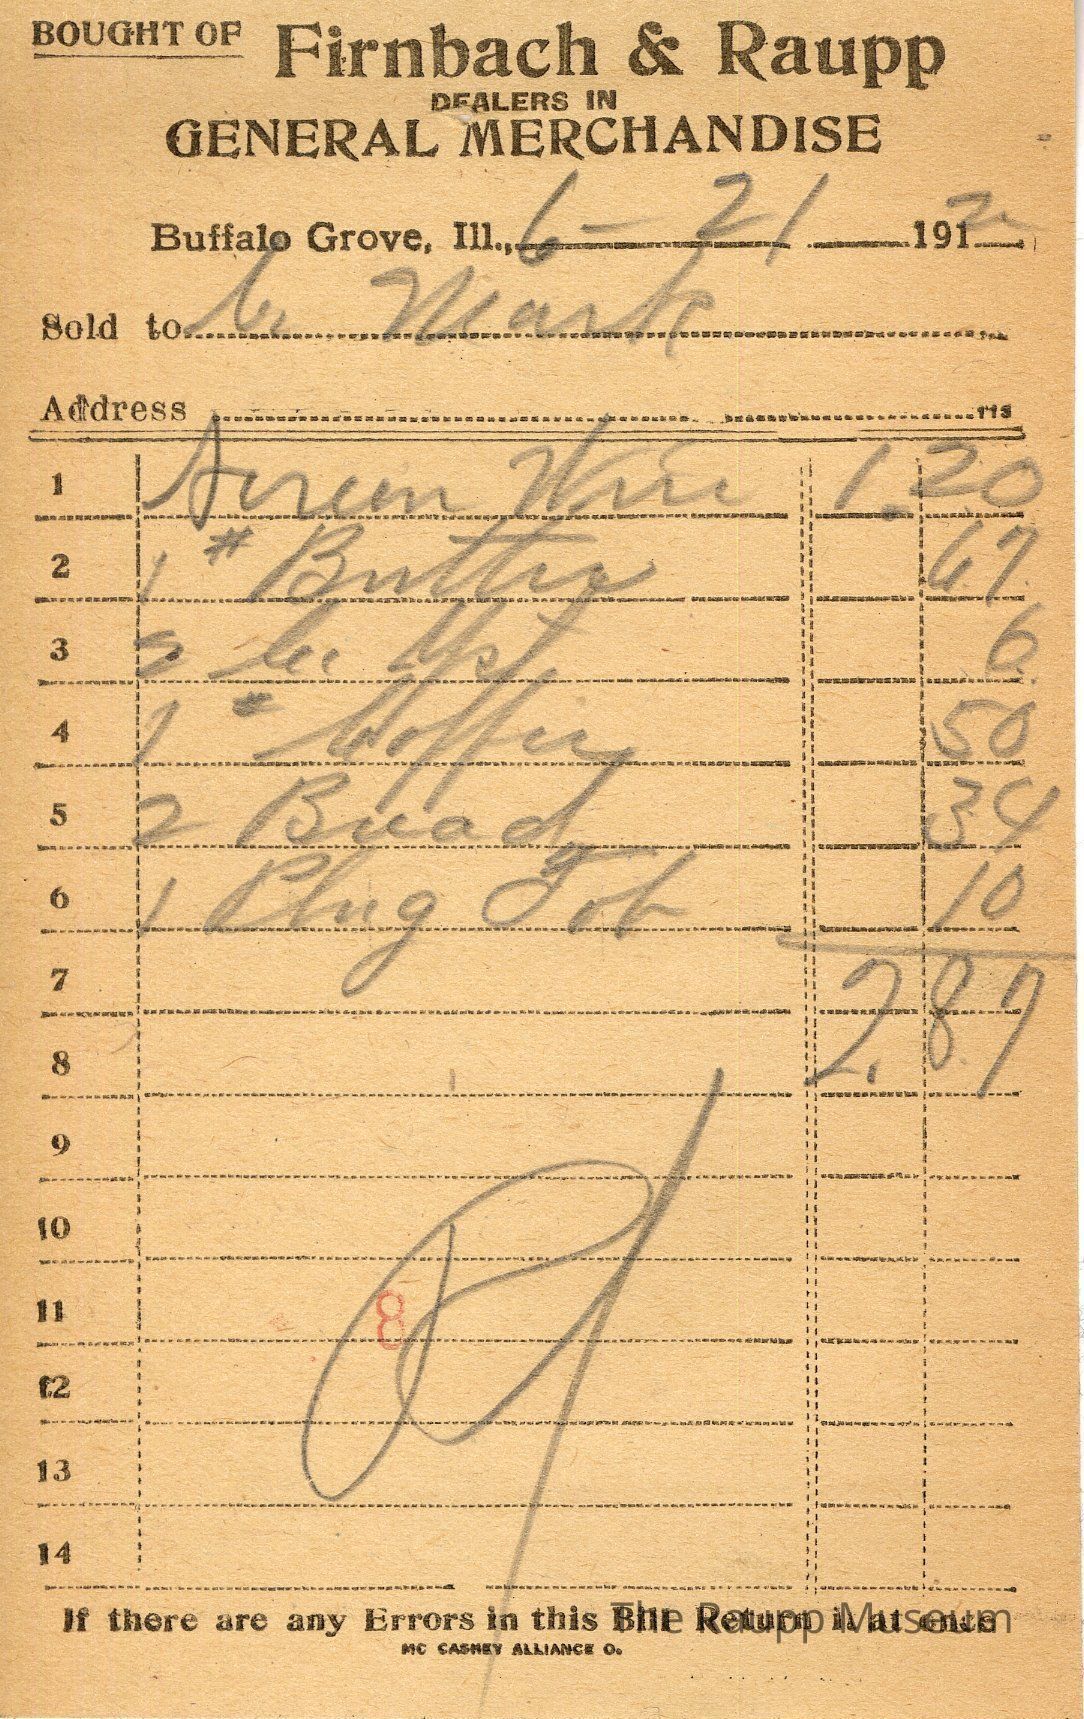 BOUGHT OF Firnbach & Raupp
DEALERS IN
GENERAL MERCHANDISE
Buffalo Grove, Ill., 6-21 1912
Sold to Mark
Address 113
1 Screen Wire 1.20
2 1 # Butter 67
3 2 6
4 1 # Coffee 50
5 2 Bread 34
6 1 Plug Tob 10
7 2.87
8
9
10
11 8
12
13
14
If there are any Errors in this Bill Return it at once
The Raupp Museum
MC CASKEY ALLIANCE O.